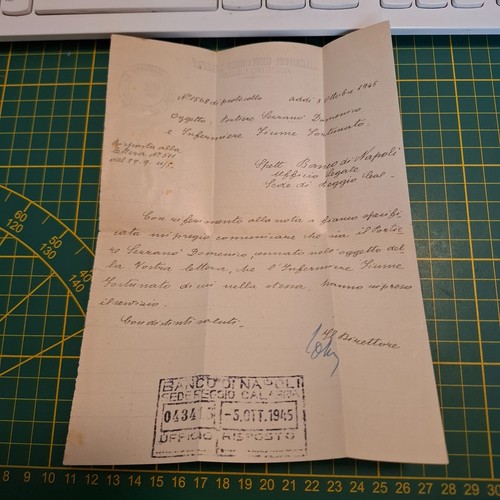 N° 1848 di protocollo addì 3 Ottobre 1945
Oggetto: Portiere Serranò Domenico
e Infermiere Fiume Fortunato.
Risposta alla
lettera N° 511
del 29.9. u/s.
Spett. Banco di Napoli
Ufficio Legale
Sede di Reggio Cal.
Con riferimento alla nota a fianco specifi-
cata mi pregio comunicare che sia il Portie-
re Serranò Domenico, cennato nell'oggetto del-
la Vostra lettera, che l'Infermiere Fiume
Fortunato di cui nella stessa, hanno ripreso
il servizio.
Con distinti saluti.
Il Direttore
BANCO DI NAPOLI
SEDE REGGIO CALABRIA
0434
-5.OTT.1945
UFFICIO RISPOSTO
60
50
40
30
20
80
70
60
8 9 10 11 12 13 14 15 16 17 18 19 20 21 22 23 24 25 26 27 28 29 30